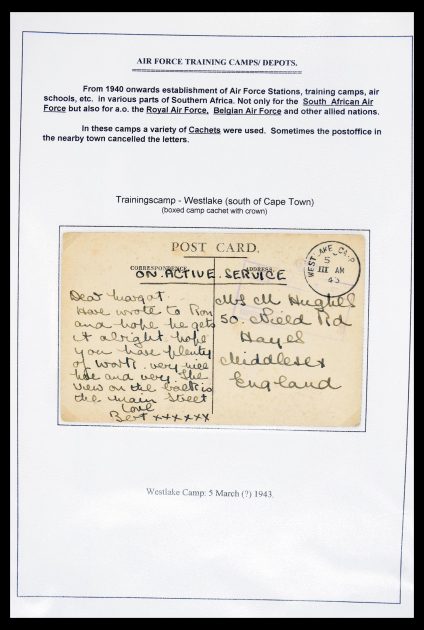 AIR FORCE TRAINING CAMPS/ DEPOTS.
From 1940 onwards establishment of Air Force Stations, training camps, air
schools, etc. in various parts of Southern Africa. Not only for the South African Air
Force but also for a.o. the Royal Air Force, Belgian Air Force and other allied nations.
In these camps a variety of Cachets were used. Sometimes the postoffice in
the nearby town cancelled the letters.
Trainingscamp - Westlake (south of Cape Town)
(boxed camp cachet with crown)
POST CARD.
CORRESPONDENCE
ADDRESS
ON ACTIVE SERVICE
WESTLAKE CAMP
5
III AM
43
Dear Margat.
Have wrote to Ron
and hope he gets
it alright hope
you have plenty
of work. very nice
here and very. The
view on the back is
the main Street
Love
Bert xxxxxx
Mrs M Hughes
50. Field Rd
Hayes
Middlesex
England
Westlake Camp: 5 March (?) 1943.